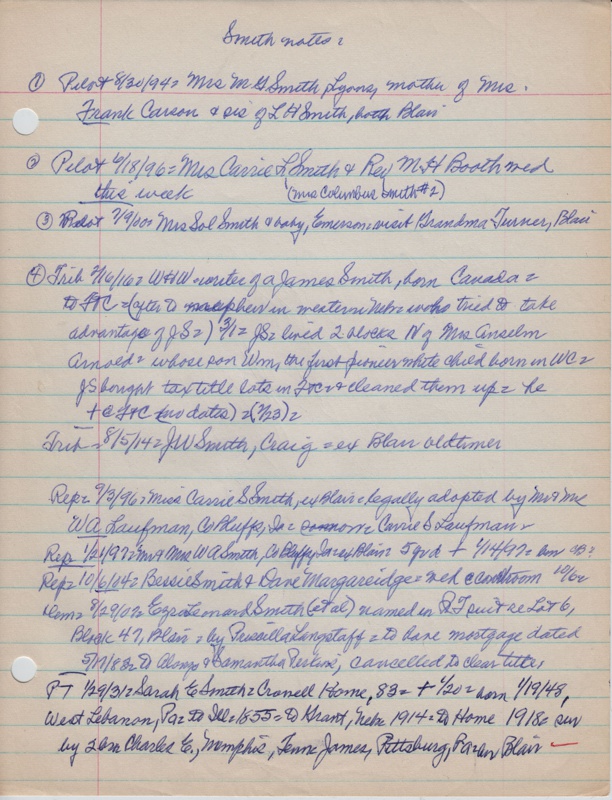 Smith notes =
① Pilot 8/30/94 = Mrs M G Smith, Lyons, mother of Mrs.
Frank Carson & sis of L H Smith, both Blair
② Pilot 6/18/96 = Mrs Carrie L Smith & Rev M H Booth wed
this week (Mrs Columbus Smith #2)
③ Pilot 7/9/00 = Mrs Sol Smith & baby, Emerson = visit Grandma Turner, Blair
④ Trib 2/16/16 = W H W = writer of a James Smith, born Canada =
to FtC = (after D nephew in western Nebr = who tried to take
advantage of JS =) 3/1 = JS = lived 2 blocks N of Mrs Anselm
Arnold = whose son Wm, the first pioneer white child born in WC =
JS bought tax title lots in FtC & cleaned them up = he
+ @ FtC (no dates) = (3/23) =
Trib = 8/5/14 = J W Smith, Craig = ex Blair oldtimer
Rep = 9/3/96 = Miss Carrie S Smith, ex Blair = legally adopted by Mr & Mrs
W A Laufman, Co Bluffs, Ia = now = Carrie S Laufman =
Rep 1/21/97 = Mr & Mrs W A Smith, Co Bluffs, Ia = ex Blair = 5 gr d + 1/14/97 =
Rep = 10/6/04 = Bessie Smith & Dave Margareidge = wed @ courtroom
8/29/07 = Ezra Leonard Smith (et al) named in Q T suit re Lot 6,
Block 47, Blair = by Priscilla Langstaff = to have mortgage dated
5/17/83 = to Alonzo & Samantha Perkins, cancelled to clear title,
PT 1/29/31 = Sarah E Smith = Crowell Home, 83 = + 1/20 = born 1/19/48,
West Lebanon, Pa = to Ill = 1855 = to Grant, Nebr 1914 = to Home 1918 = sur
by 2 sn Charles E., Memphis, Tenn James, Pittsburg, Pa = bur Blair